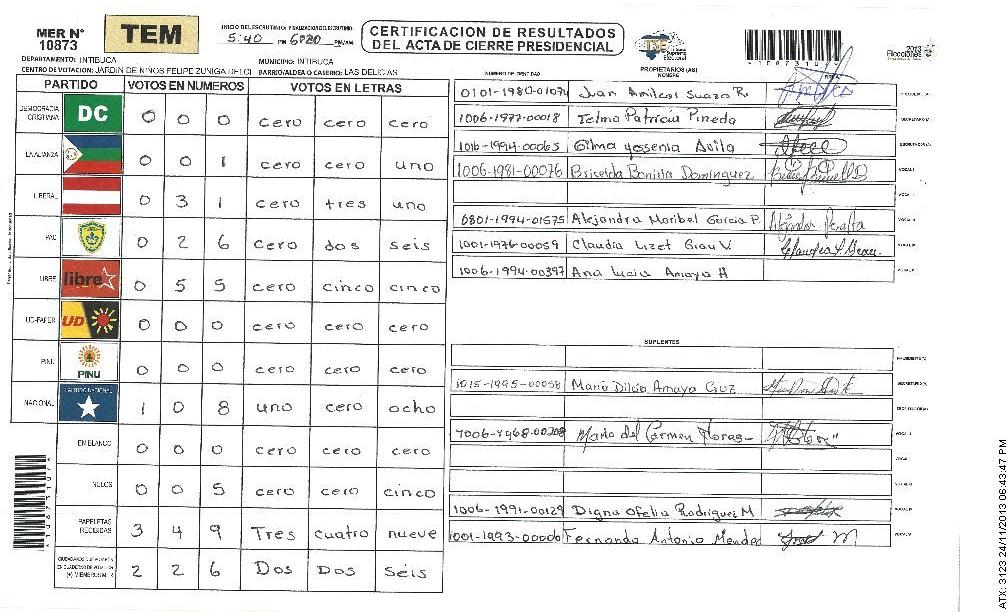 MER N° 10873
TEM
INICIO DEL ESCRUTINIO: FINALIZACION DEL ESCRUTINIO
5:40 PM 6:20 PM/AM
CERTIFICACION DE RESULTADOS
DEL ACTA DE CIERRE PRESIDENCIAL
DEPARTAMENTO: INTIBUCA MUNICIPIO: INTIBUCA
CENTRO DE VOTACION: JARDIN DE NIÑOS FELIPE ZUNIGA DEL CI BARRIO/ALDEA O CASERIO: LAS DELICIAS
NUMERO DE IDENTIDAD PROPIETARIOS (AS) NOMBRE
PARTIDO VOTOS EN NUMEROS VOTOS EN LETRAS
DEMOCRACIA CRISTIANA DC 0 0 0 cero cero cero
LA ALIANZA 0 0 1 cero cero uno
LIBERAL 0 3 1 cero tres uno
PAC 0 2 6 cero dos seis
LIBRE libre 0 5 5 cero cinco cinco
UD-FAPER UD 0 0 0 cero cero cero
PINU PINU 0 0 0 cero cero cero
NACIONAL PARTIDO NACIONAL 1 0 8 uno cero ocho
EN BLANCO 0 0 0 cero cero cero
NULOS 0 0 5 cero cero cinco
PAPELETAS RECIBIDAS 3 4 9 Tres cuatro nueve
2 2 6 Dos Dos seis
0101-1980-01094 Juan Amilcar Suazo R.
1006-1977-00018 Telma Patricia Pineda
1016-1994-00065 Gilma yessenia Avila
1006-1981-00076 Briselda Bonilla Dominguez
0801-1994-01575 Alejandra Maribel Garcia P.
1001-1976-00059 Claudia Lizet Girau V.
1006-1994-00397 Ana Lucia Amaya H
SUPLENTES
1015-1995-00058 Maria Dilcia Amaya Cruz
Maria del Carmen Floras
1006-1991-00129 Digna Ofelia Rodriguez M
1001-1993-00000 Fernando Antonio Mendez
ATX: 3123 24/11/2013 06:43:47 PM